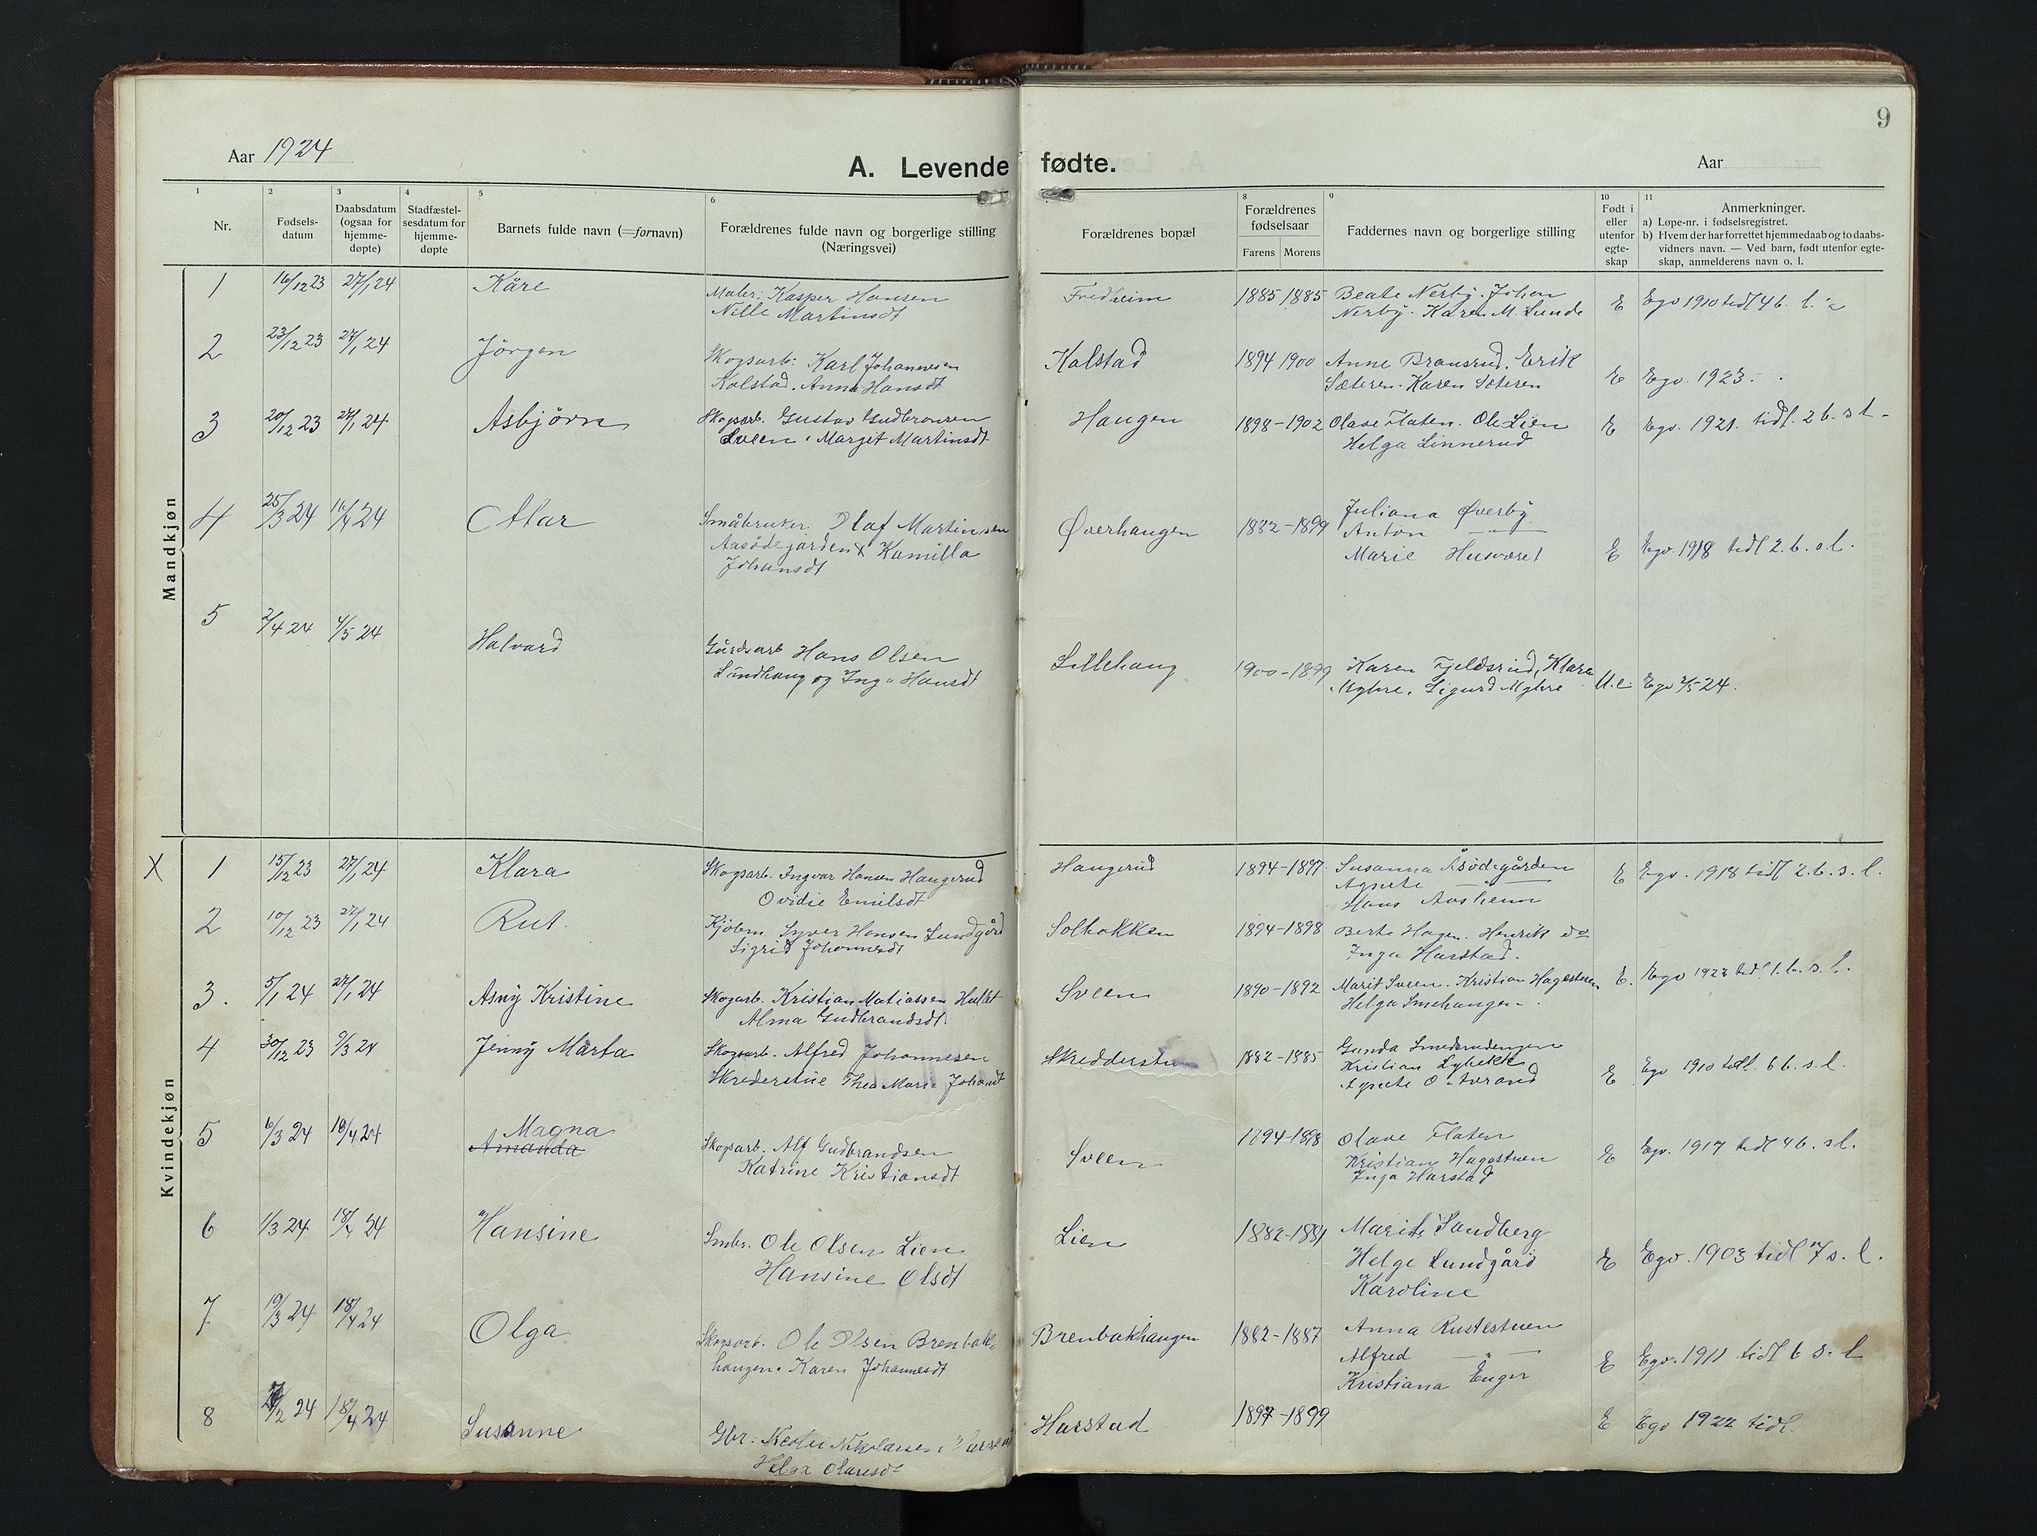 9
Aar 1924
A. Levende fødte.
Aar
1 2 3 4 5 6 8 9 10 11
Nr.
Fødsels-
datum
Daabsdatum
(ogsaa for
hjemme-
døpte)
Stadfæstel-
sesdatum for
hjemme-
døpte
Barnets fulde navn (=fornavn)
Forældrenes fulde navn og borgerlige stilling
(Næringsvei)
Forældrenes bopæl
Forældrenes
fødselsaar
Farens Morens
Faddernes navn og borgerlige stilling
Født i
eller
utenfor
egte-
skap
Anmerkninger.
a) Løpe-nr. i fødselsregistret.
b) Hvem der har forrettet hjemmedaab og to daabs-
vidners navn. — Ved barn, født utenfor egte-
skap, anmelderens navn o. l.
Mandkjøn
1 16/12 23 27/1 24 Kåre Maler: Kasper Hansen Fredheim 1885-1885 Beate Nerby. Johan E Egv 1910 tidl 4 b.
Nille Martinsdt Nerby. Karen M. Lunde
2 23/12 23 27/1 24 Jörgen Skogsarb: Karl Johannesen Kolstad 1894-1900 Anne Bransrud. Erik
Kolstad. Anna Hansdt Sæteren. Karen Sæteren E Egv. 1923.
3 20/12 23 27/1 24 Asbjörn Skogsarb. Gustav Gudbransen Haugen 1898-1902 Olave Flaten. Ole Lien E Egv. 1921. tidl. 2 b. s l-
Sveen. Marget Martinsdt Helga Linnerud
4 25/3 24 16/4 24 Småbruker. Olaf Martinsen Øverhaugen 1882-1899 Juliana Øverby
Aasödegarden & Kamilla Anton —"—
Johansdt Marie Husværet E Egv 1918 tidl 2. b. s l.
5 2/4 24 4/5 24 Halvard Gårdsarb Hans Olsen Lillehaug 1900-1899 Karen Fjeldsrud, Klara
Lundhaug og Inga Hansdt Myhre, Sigurd Myhre U.e. Egv 2/5 24.
Kvindekjøn
X 1 15/12 23 27/1 24 Klara Skogsarb. Ingvar Hansen Haugerud Haugerud 1894-1897 Susanna Åsödegården E Egv. 1918 tidl 2. b. s. l.
Ovidie Emilsdt Agnete —"—
Hans Aasheim
2 10/12 23 27/1 24 Rut. Kjöbm. Syver Hansen Lundgård Solbakken 1894-1898 Berte Hagen. Henrik do
Sigrid Johannesdt Inga Harstad.
3. 5/1 24 27/1 24 Asny Kristine Skogarb. Kristian Matiassen Sveen 1890-1892 Marit Sveen. Kristian Hagestuen E. Egv 1922 tidl 1. b. s. l.
Alma Gudbrandsdt. Helga Smehaugen.
4 30/12 23 9/3 24 Jenny Marta Skogsarb. Alfred Johannesen Skredderstu 1882-1885 Gunda Smedsrudengen
Skrederstue Thea Marie Johansdt Kristian Lybekk E Egv 1910 tidl. 6 b. s. l.
Agnete O.
5 6/3 24 16/4 24 Magna
Amanda Skogsarb. Alf Gudbrandsen Sveen 1894-1898 Olave Flaten E Egv. 1917 tidl 4 b. s l.
Katrine Kristiansdt Kristian Hagestuen
Inga Harstad
6 1/3 24 18/4 24 Hansine Smbr. Ole Olsen Lien Lien 1882-1881 Marit Sandberg
Hansine Olsdt Helge Lundgård E Egv. 1903 tidl 7 s. l.
Karoline
7 19/3 24 18/4 24 Olga Skogsarb. Ole Olsen Brenbak- Brenbakhaugen 1882-1887 Anna Rustestuen
haugen. Karen Johannesdt Alfred —"— E Egv. 1911 tidl 6 s. l
Kristiana Enger
8 2/2 24 18/4 24 Susanne Gbr. Nikolaisen Harstad 1897-1899 E Egv 1922 tidl.
Helga Olavesdt